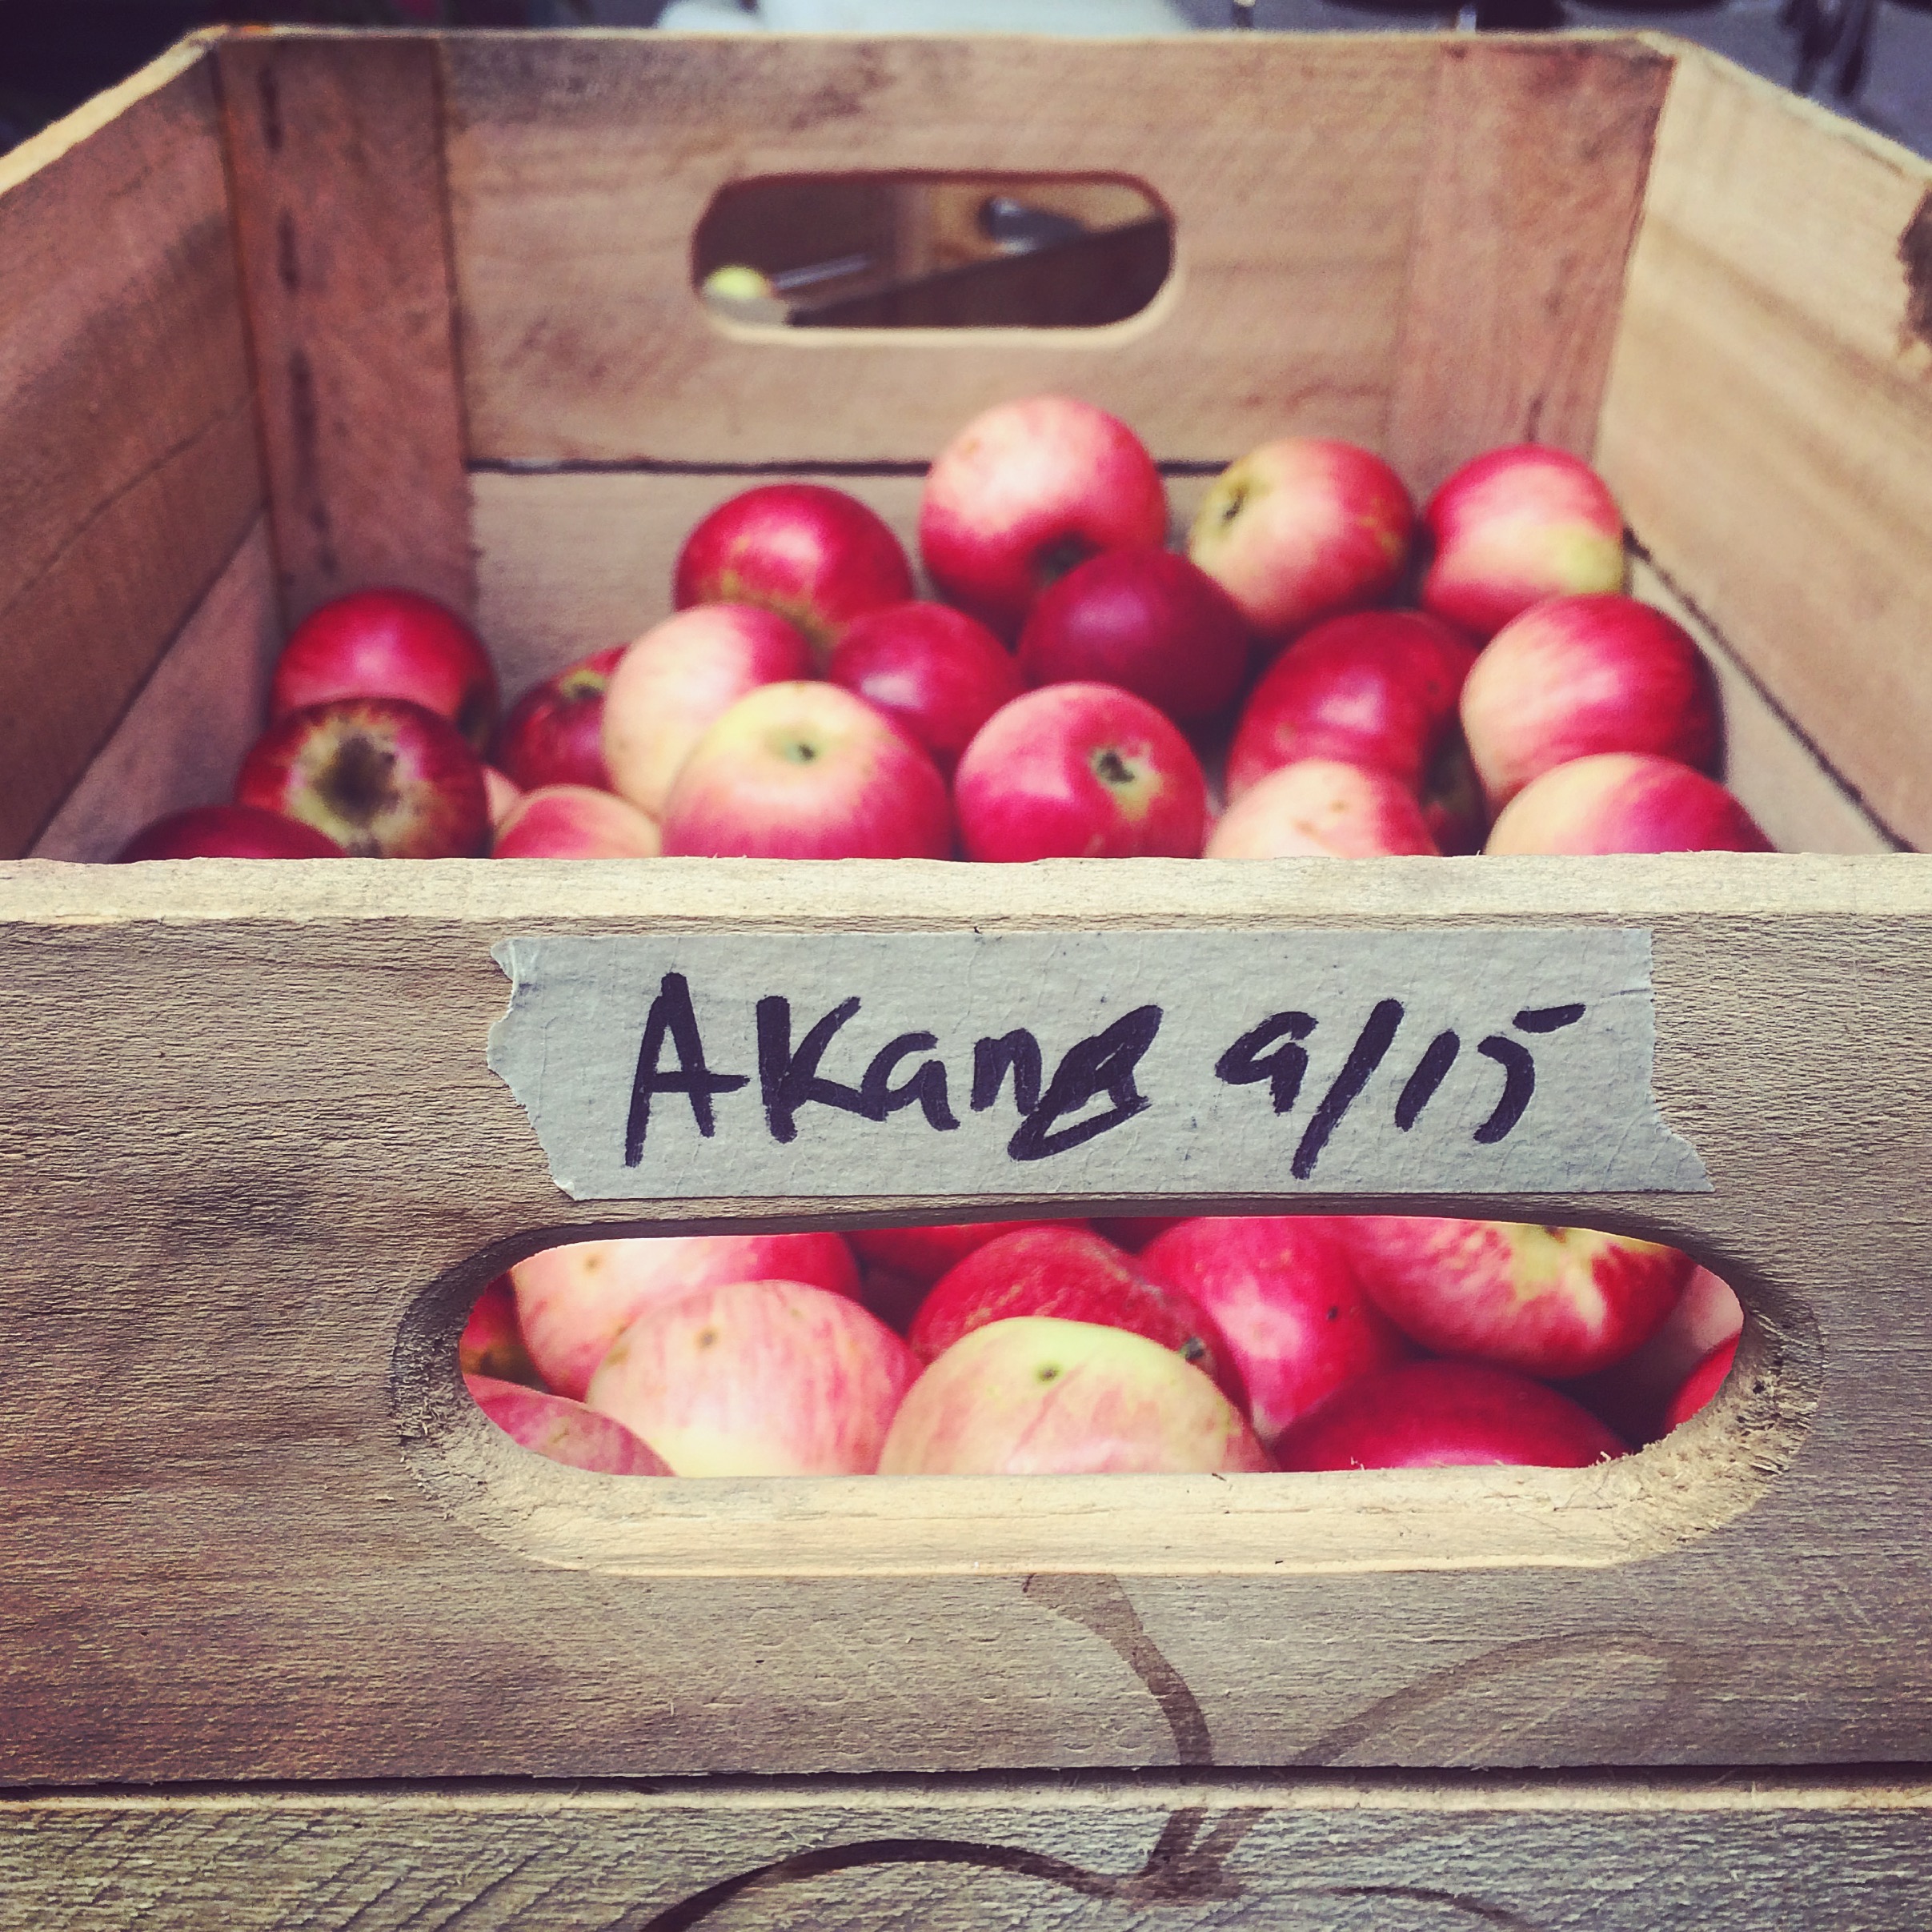 AKane 9/15